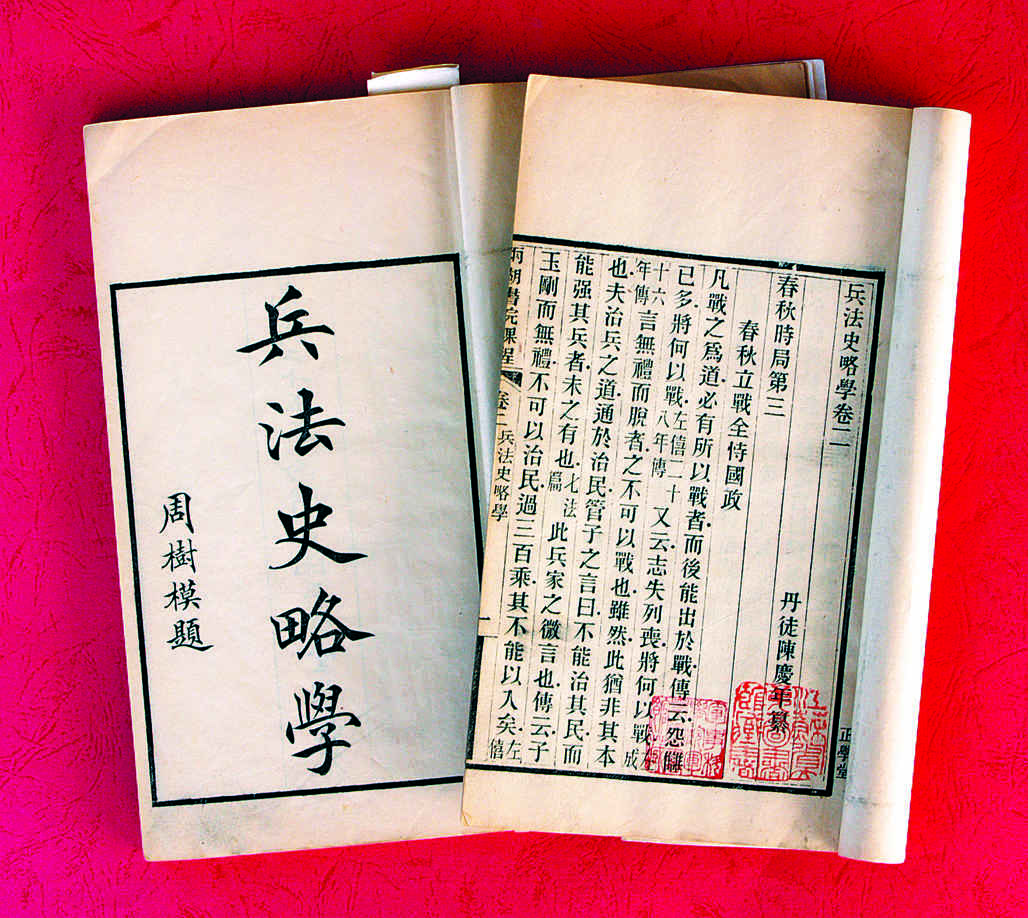 兵法史略學
周樹模題
兵法史略學卷二 正學堂
春秋時局第三 丹徒陳慶年纂
春秋立戰全恃國政
凡戰之爲道必有所以戰者而後能出於戰傳云怨讎
已多將何以戰左僖二十八年傳又云志失列喪將何以戰左成
十六年傳言無禮而脫者之不可以戰也雖然此猶非其本
也夫治兵之道通於治民管子之言曰不能治其民而
能强其兵者未之有也七法篇此兵家之微言也傳云子
玉剛而無禮不可以治民過三百乘其不能以入矣左僖
兩湖書院課程 卷二兵法史略學 一